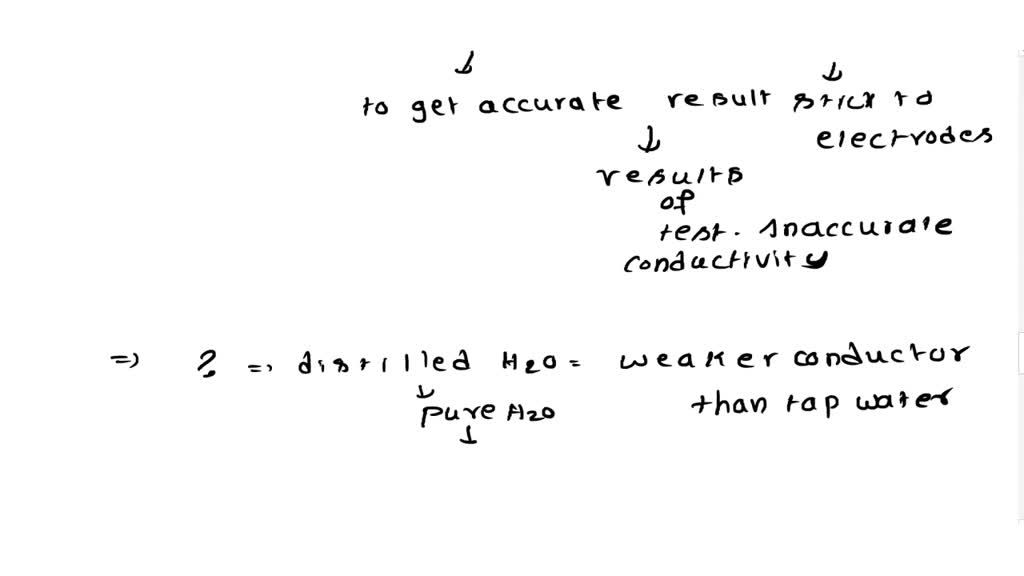 to get accurate result stick to
electrodes
results
of
test. Inaccurate
conductivity
=) ? =) distilled H2O = weaker conductor
pure H2O than tap water